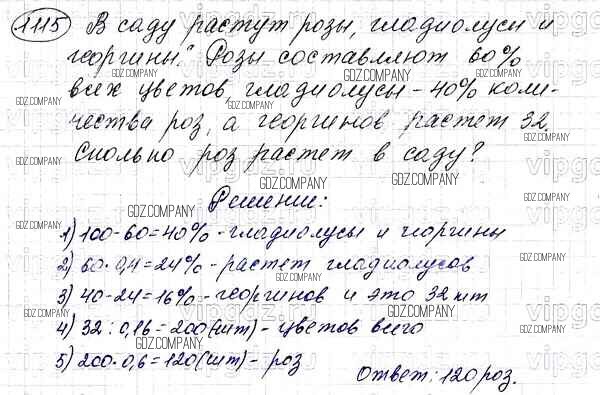 1115 В саду растут розы, гладиолусы и
георгины. Розы составляют 60%
всех цветов, гладиолусы - 40% коли-
чества роз, а георгинов растет 32.
Сколько роз растет в саду?
Решение:
1) 100-60=40% - гладиолусы и георгины
2) 60·0,4=24% - растет гладиолусов
3) 40-24=16% - георгинов и это 32 шт
4) 32:0,16=200(шт) - цветов всего
5) 200·0,6=120(шт) - роз
Ответ: 120 роз.
GDZ.COMPANY
vipgdz.ru